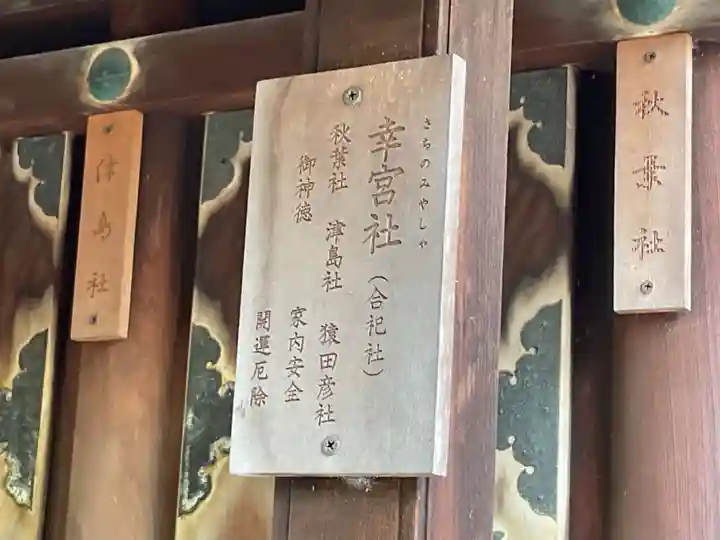 秋葉社
さちのみやしゃ
幸宮社(合祀社)
秋葉社 津島社 猿田彦社
御神徳 家内安全
開運厄除
津島社